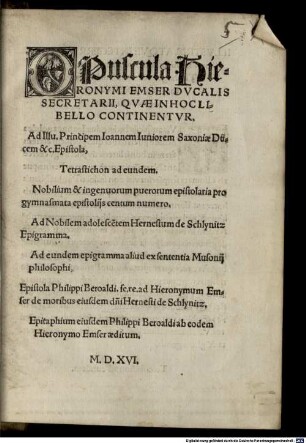 OPuscula Hie-
RONYMI EMSER DVCALIS
SECRETARII, QVÆ IN HOC LI
BELLO CONTINENTVR.
Ad Illu. Principem Ioannem Iuniorem Saxoniæ Du
cem &c. Epistola,
Tetrastichon ad eundem.
Nobilium & ingenuorum puerorum epistolatia pro
gymnasmata epistolijs centum numero.
Ad Nobilem adolescẽtem Hernestum de Schlynitz
Epigramma.
Ad eundem epigramma aliud ex sententia Musonij
philosophi.
Epistola Philippi Beroaldi. fe.re.ad Hieronymum Em
ser de moribus eiusdem dñi Hernesti de Schlynitz,
Epitaphium eiusdem Philippi Beroaldi ab eodem
Hieronymo Emser æditum.
M. D. XVI.